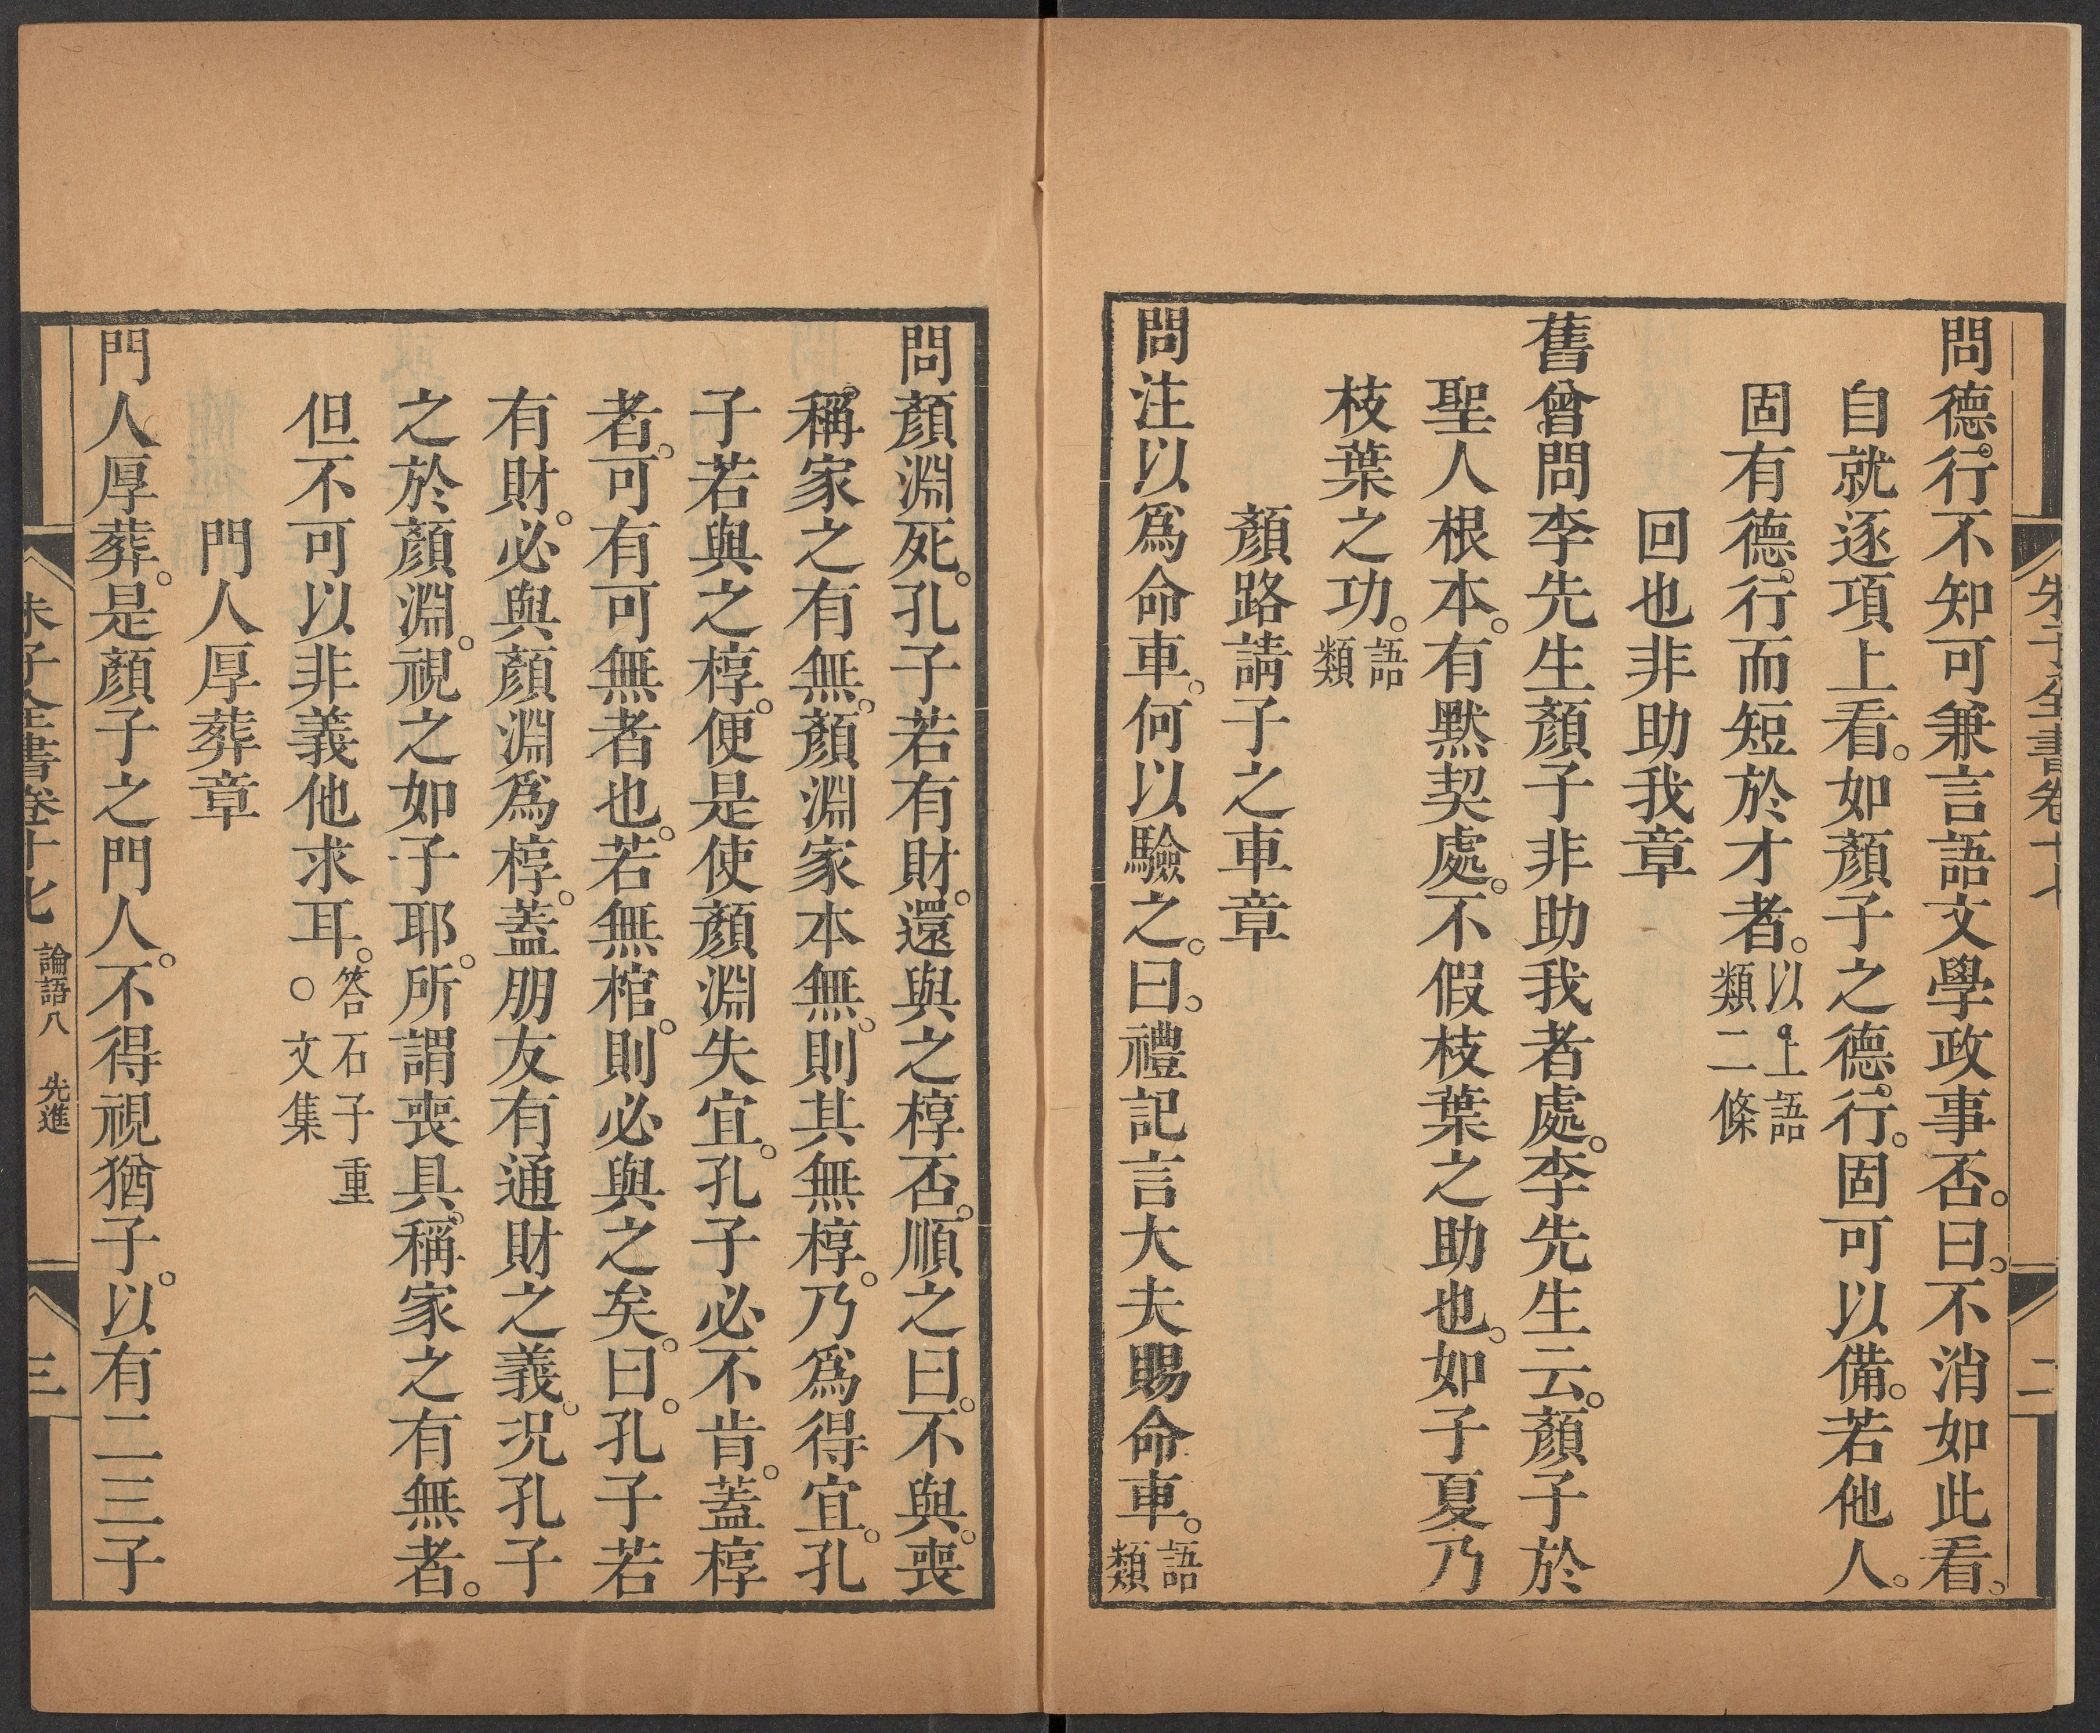 朱子全書卷十七
二
問德行不知可兼言語文學政事否。曰。不消如此看。
自就逐項上看。如顏子之德行。固可以備。若他人。
固有德行而短於才者。以上語類二條
回也非助我章
舊曾問李先生顏子非助我者處。李先生云。顏子於
聖人根本。有默契處。不假枝葉之助也。如子夏乃
枝葉之功。語類
顏路請子之車章
問注以爲命車。何以驗之。曰。禮記言大夫賜命車。語類
問顏淵死。孔子若有財。還與之椁否。順之曰。不與。喪
稱家之有無。顏淵家本無。則其無椁。乃爲得宜。孔
子若與之椁。便是使顏淵失宜。孔子必不肯。蓋椁
者。可有可無者也。若無棺。則必與之矣。曰。孔子若
有財。必與顏淵爲椁。蓋朋友有通財之義。況孔子
之於顏淵。視之如子耶。所謂喪具。稱家之有無者。
但不可以非義他求耳。答石子重○文集
門人厚葬章
門人厚葬。是顏子之門人。不得視猶子。以有二三子
朱子全書卷十七 論語八 先進
三